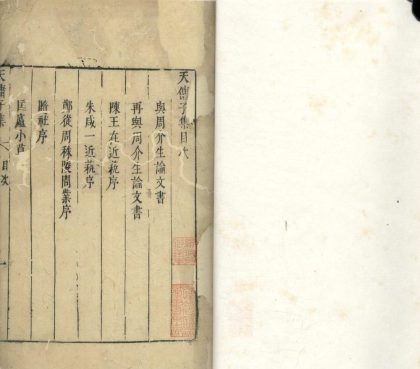 天傭子集目次
與周介生論文書
再與周介生論文書
陳王在近藝序
朱咸一近藝序
鄒後周
問業序
社序
匡廬小
天傭子集 目次 一